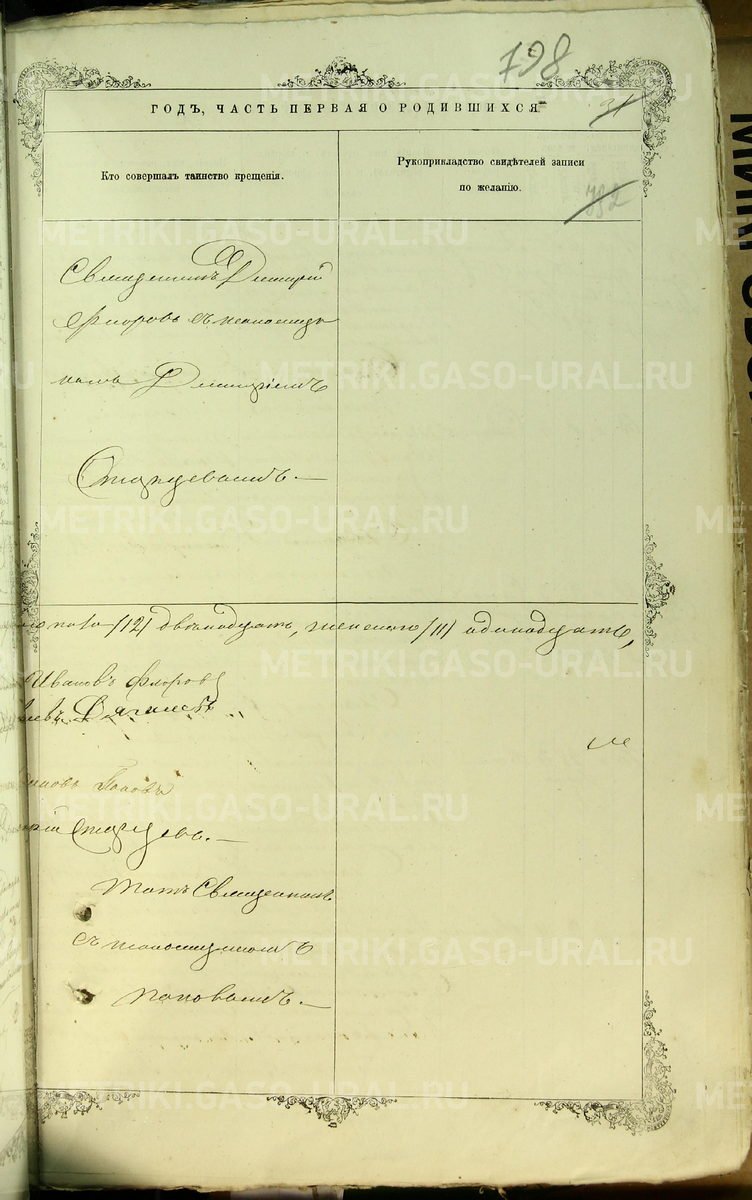 798
ГОДЪ, ЧАСТЬ ПЕРВАЯ О РОДИВШИХСЯ
31
Кто совершалъ таинство крещенія.
Рукоприкладство свидѣтелей записи
по желанію.
732
Священникъ Дмитрій
Флоровъ съ псаломщи
комъ Дмитріемъ
Старцевымъ.—
/12/ двѣнадцать, женскаго /11/ одинадцать,
Иванъ Флоровъ
Поповъ
Старцевъ.—
Тотъ Священникъ
съ псаломщикомъ
Поповымъ.—
METRIKI.GASO-URAL.RU